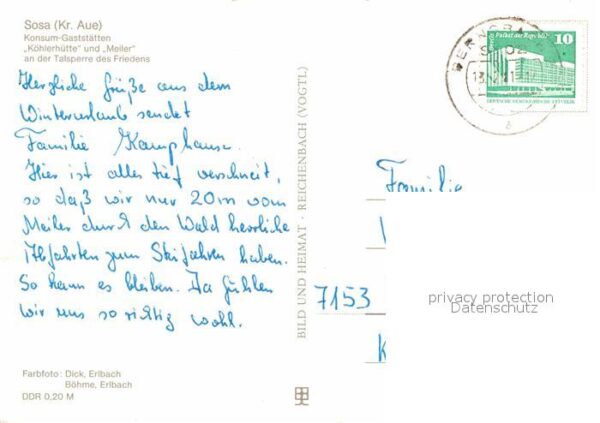 Sosa (Kr. Aue)
Konsum-Gaststätten
„Köhlerhütte" und „Meiler"
an der Talsperre des Friedens
Herzliche Grüße aus dem
Winterurlaub sendet
Familie Kamphause.
Hier ist alles tief verschneit,
so daß wir nur 20m vom
Meiler durch den Wald herrliche
Abfahrten zum Skifahren haben.
So kann es bleiben. Da fühlen
wir uns so richtig wohl.
Farbfoto: Dick, Erlbach
Böhme, Erlbach
DDR 0,20 M
BILD UND HEIMAT · REICHENBACH (VOGTL)
Palast der Republik
10
DEUTSCHE DEMOKRATISCHE REPUBLIK
Familie
7153
K
privacy protection
Datenschutz